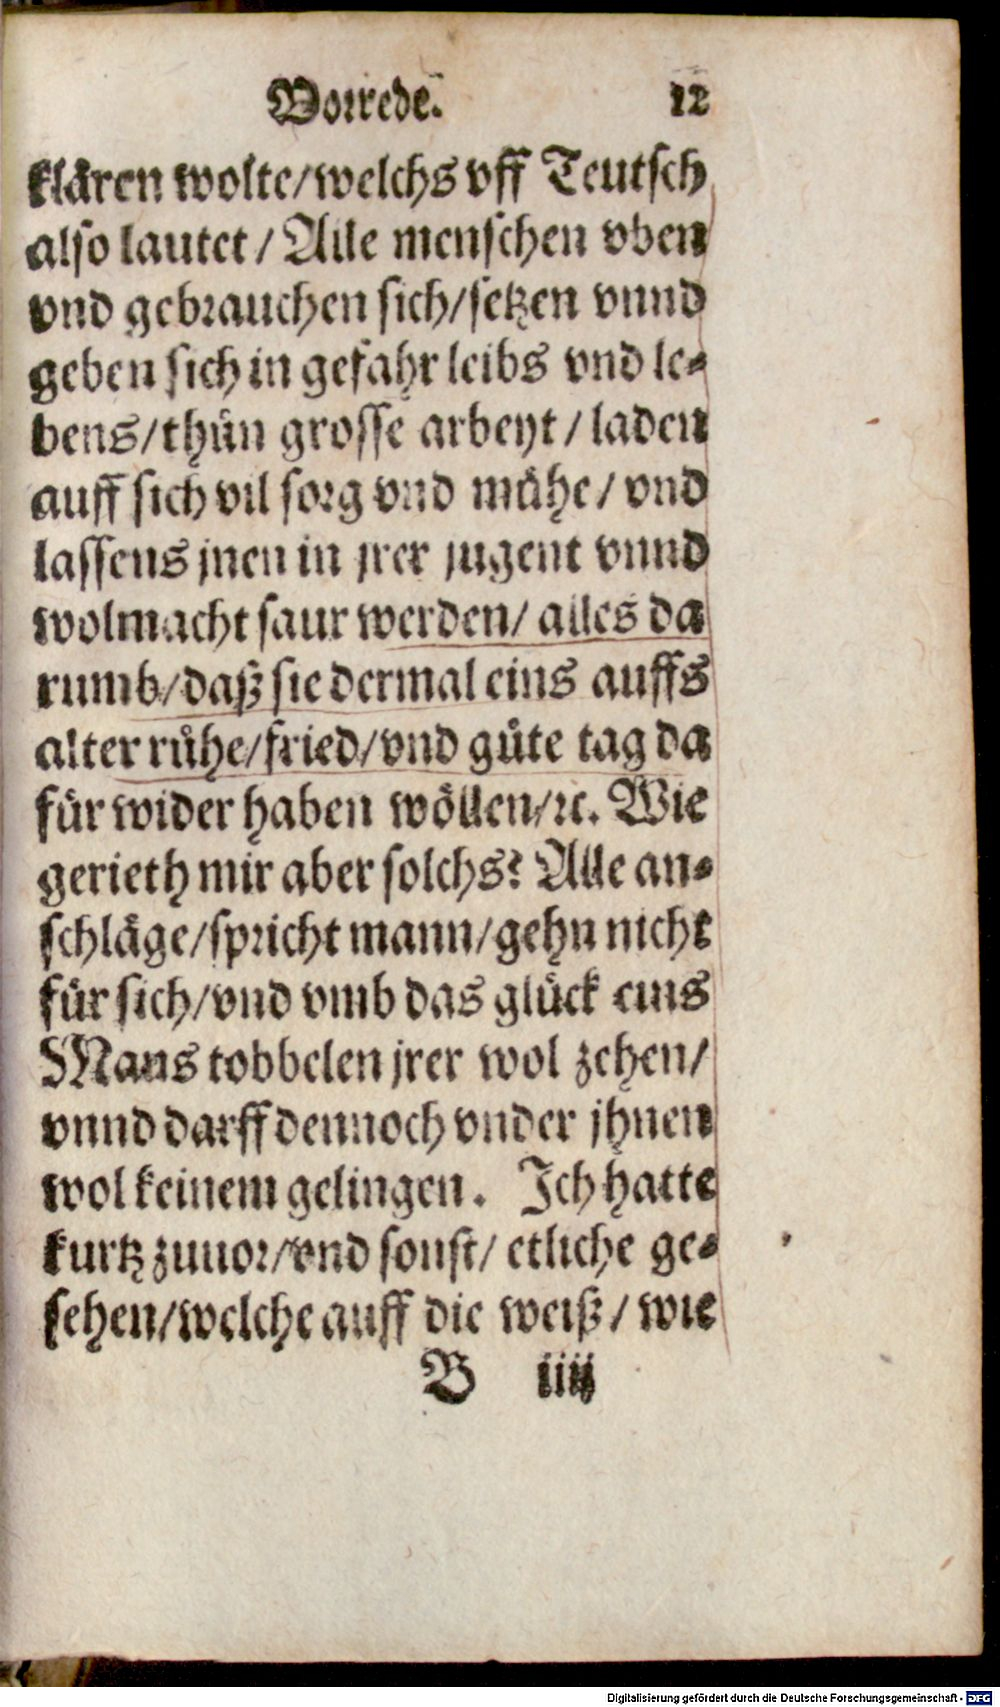 Vorrede. 12
klären wolte/welchs vff Teutsch
also lautet / Alle menschen vben
vnd gebrauchen sich/setzen vnnd
geben sich in gefahr leibs vnd le-
bens/thůn grosse arbeyt / laden
auff sich vil sorg vnd můhe/ vnd
lassens jnen in jrer jugent vnnd
wolmacht saur werden/ alles da
rumb/daß sie dermal eins auffs
alter růhe/fried/vnd gůte tag da
für wider haben wöllen/ꝛc. Wie
gerieth mir aber solchs? Alle an-
schläge/spricht mann/gehn nicht
für sich/vnd vmb das glück eins
Mans tobbelen jrer wol zehen/
vnnd darff dennoch vnder jhnen
wol keinem gelingen. Ich hatte
kurtz zuuor/vnd sonst/ etliche ge-
sehen/welche auff die weiß/ wie
B iiij
Digitalisierung gefördert durch die Deutsche Forschungsgemeinschaft - DFG